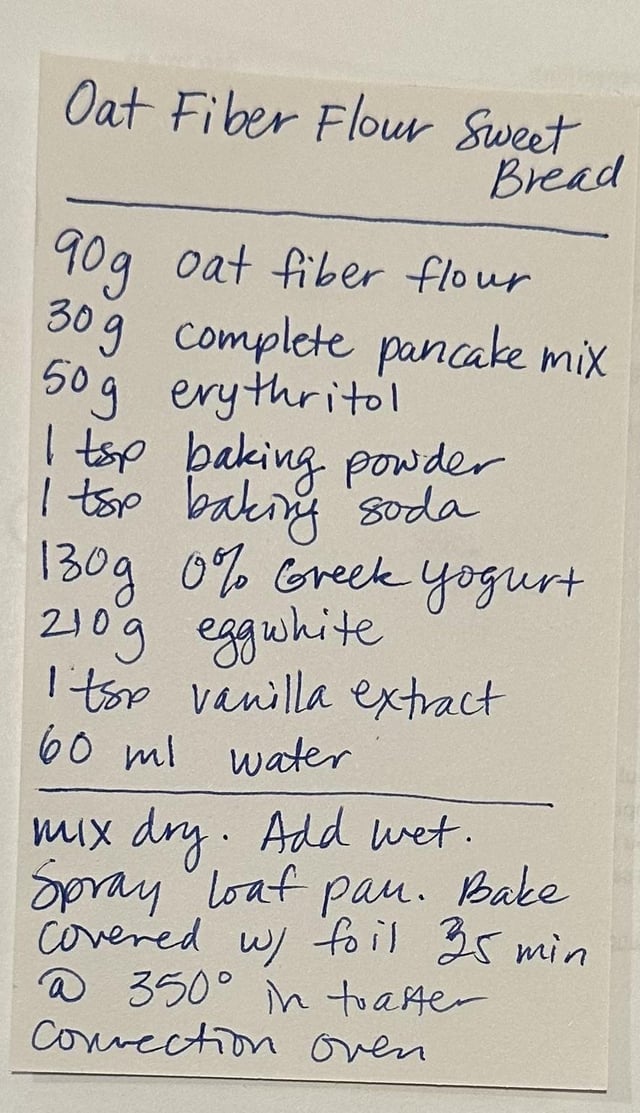 Oat Fiber Flour Sweet
Bread
90g oat fiber flour
30g complete pancake mix
50g erythritol
1 tsp baking powder
1 tsp baking soda
130g 0% Greek yogurt
210g eggwhite
1 tsp vanilla extract
60 ml water
mix dry. Add wet.
Spray loaf pan. Bake
covered w/ foil 35 min
@ 350° in toaster
convection oven